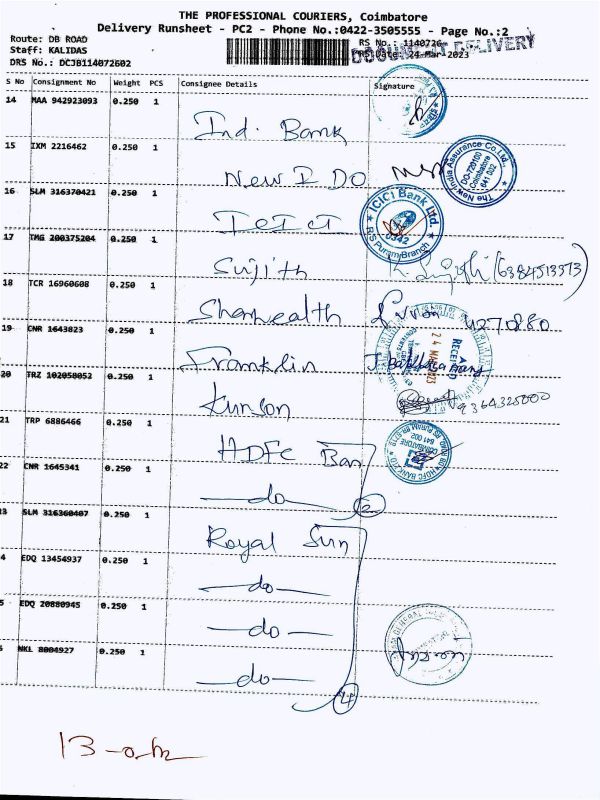 THE PROFESSIONAL COURIERS, Coimbatore
Delivery Runsheet - PC2 - Phone No.:0422-3505555 - Page No.:2
Route: DB ROAD
Staff: KALIDAS
DRS No.: DCJB114072602
RS No.: 1140726
DRS Date: 24-Mar-2023
DOCUMENT DELIVERY
S No Consignment No Weight PCS Consignee Details Signature
14 MAA 942923093 0.250 1 Ind. Bank
15 IXM 2216462 0.250 1 New I DO
The New India Assurance Co.Ltd., DO-720100 Coimbatore 641 002
16 SLM 316370421 0.250 1 ICICI
ICICI Bank Ltd. 0342 R S Puram Branch
17 TMG 200375204 0.250 1 Sujith (6384513373)
18 TCR 16960608 0.250 1 Sharewealth 4270880
19 CNR 1643823 0.250 1 Franklin
RECEIVED 24 MAR 2023
20 TRZ 102058052 0.250 1 9364325000
21 TRP 6886466 0.250 1 HDFC Ban
HDFC BANK LTD COIMBATORE 641 002
22 CNR 1645341 0.250 1 -do- 2
3 SLM 316360407 0.250 1 Royal Sun
4 EDQ 13454937 0.250 1 -do-
5 EDQ 20880945 0.250 1 -do-
6 NKL 8004927 0.250 1 -do- 4
13